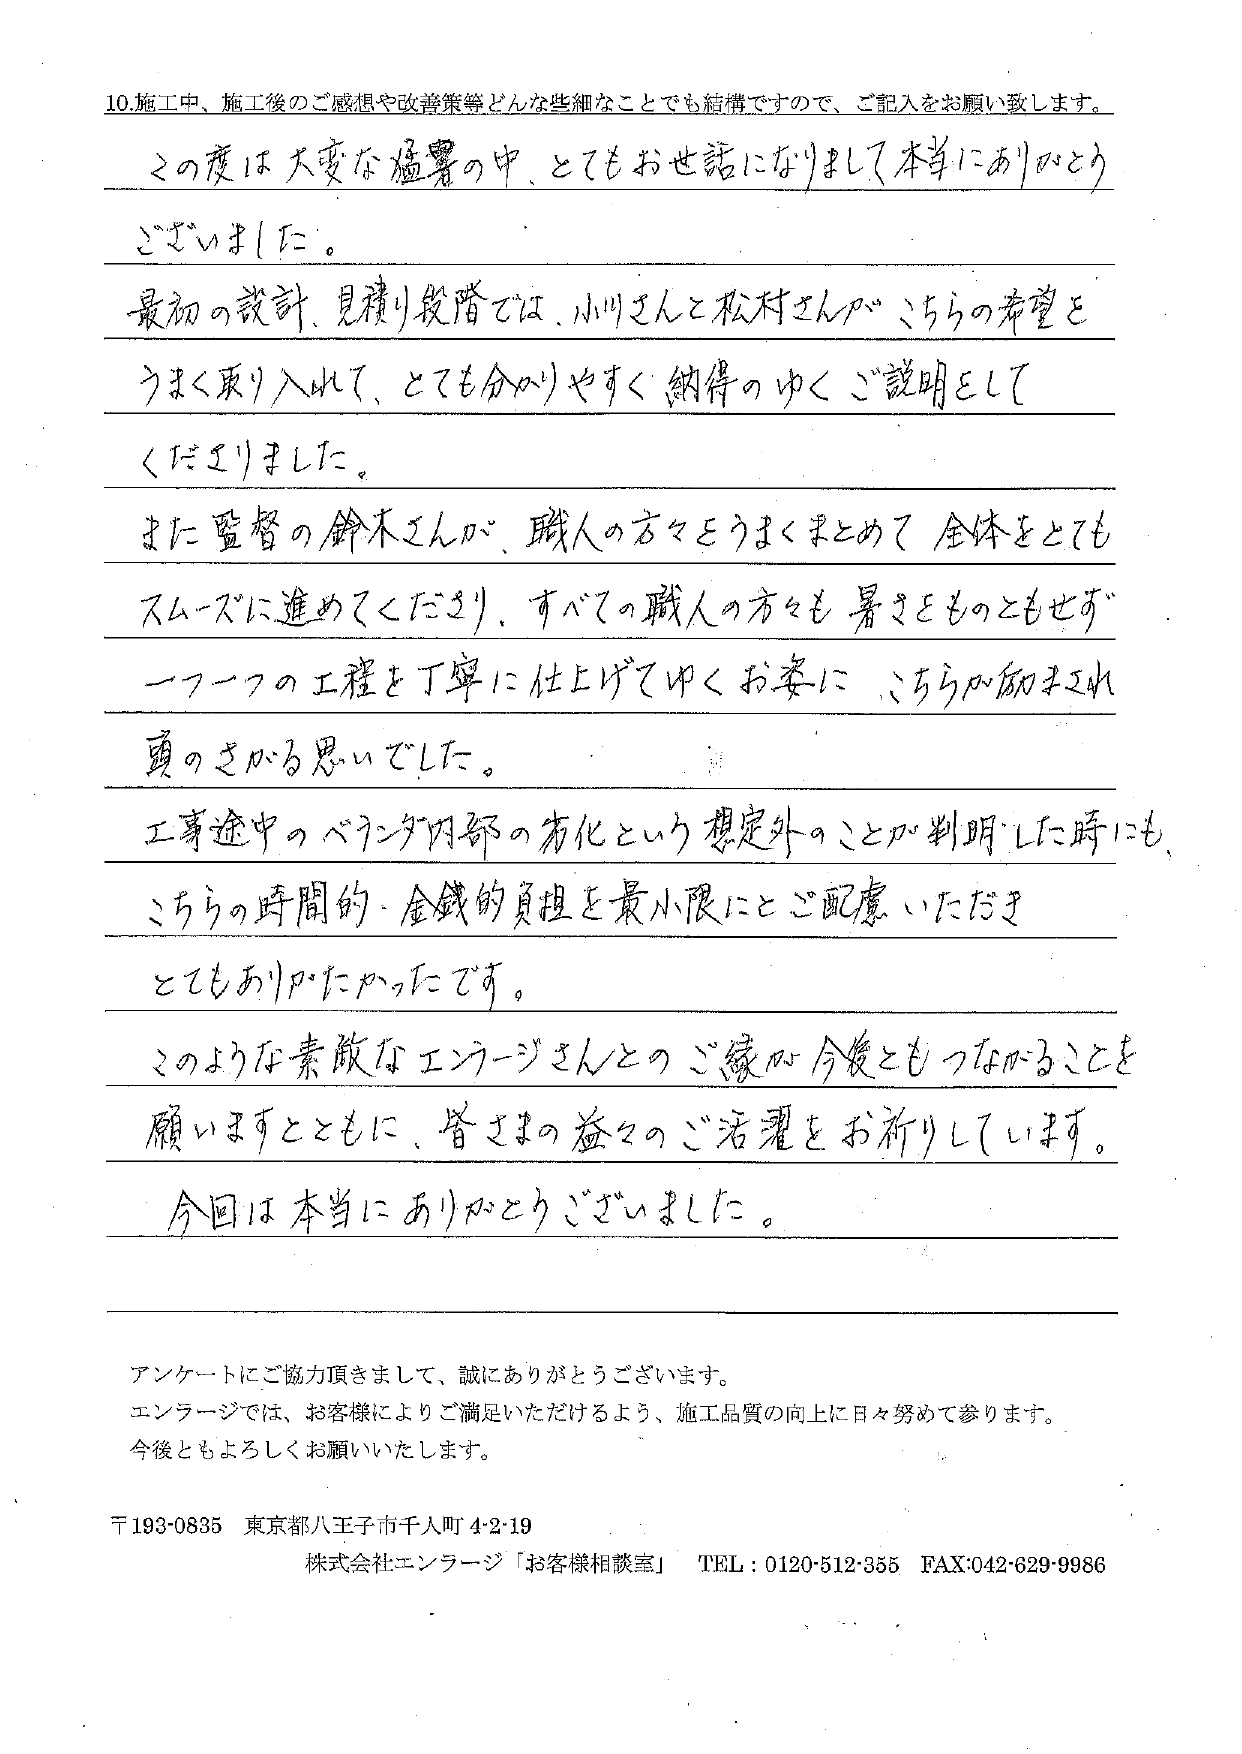 10.施工中、施工後のご感想や改善策等どんな些細なことでも結構ですので、ご記入をお願い致します。
この度は大変な猛暑の中、とてもお世話になりまして本当にありがとう
ございました。
最初の設計、見積り段階では、小川さんと松村さんがこちらの希望を
うまく取り入れて、とても分かりやすく納得のゆくご説明をして
くださりました。
また監督の鈴木さんが、職人の方々をうまくまとめて全体をとても
スムーズに進めてくださり、すべての職人の方々も暑さをものともせず
一つ一つの工程を丁寧に仕上げてゆくお姿に、こちらが励まされ
頭のさがる思いでした。
工事途中のベランダ内部の劣化という想定外のことが判明した時にも、
こちらの時間的・金銭的負担を最小限にとご配慮いただき
とてもありがたかったです。
このような素敵なエンラージさんとのご縁が今後ともつながることを
願いますとともに、皆さまの益々のご活躍をお祈りしています。
今回は本当にありがとうございました。
アンケートにご協力頂きまして、誠にありがとうございます。
エンラージでは、お客様によりご満足いただけるよう、施工品質の向上に日々努めて参ります。
今後ともよろしくお願いいたします。
〒193-0835 東京都八王子市千人町 4-2-19
株式会社エンラージ「お客様相談室」 TEL：0120-512-355 FAX:042-629-9986